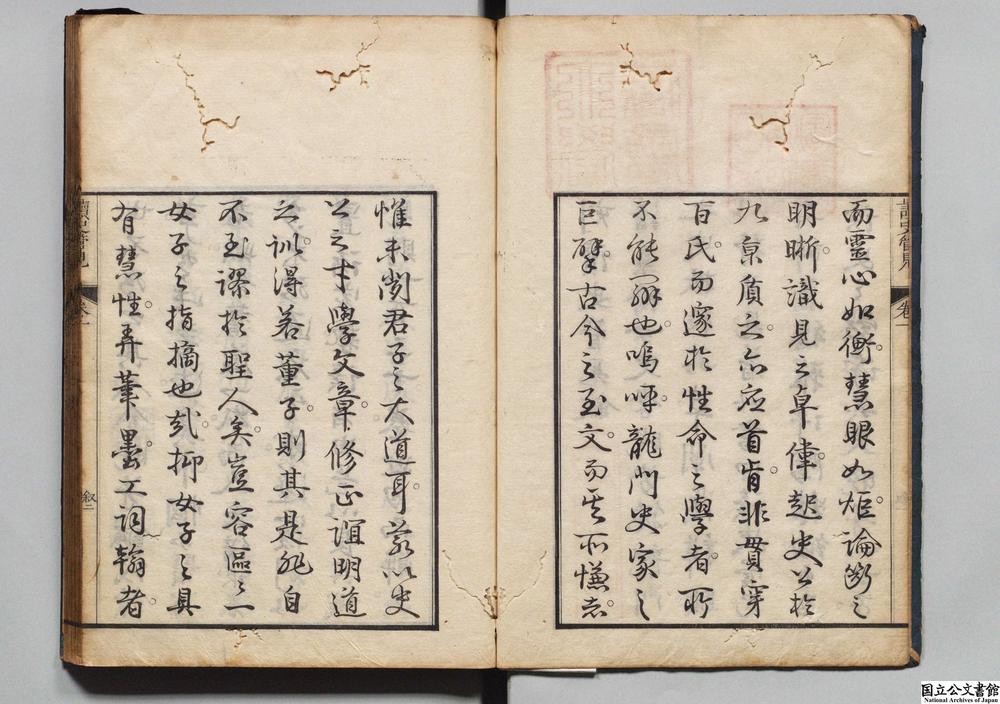 讀史管見 卷一
而靈心如衡。慧眼如炬。論斷之
明晰。識見之卓偉。起史公於
九泉質之。亦應首肯。非貫穿
百氏。而邃於性命之學者。所
不能辦也。嗚呼。龍門史家之
巨擘。古今之至文。而其所慊者。
惟未聞君子之大道耳。若以史
公之才學文章。修正誼明道
之訓。得若董子。則其是非自
不至謬於聖人矣。豈容區〻一
女子之指摘也哉。抑女子之具
有慧性。弄筆墨。工詞翰者。
讀史管見 卷一 叙二
国立公文書館
National Archives of Japan